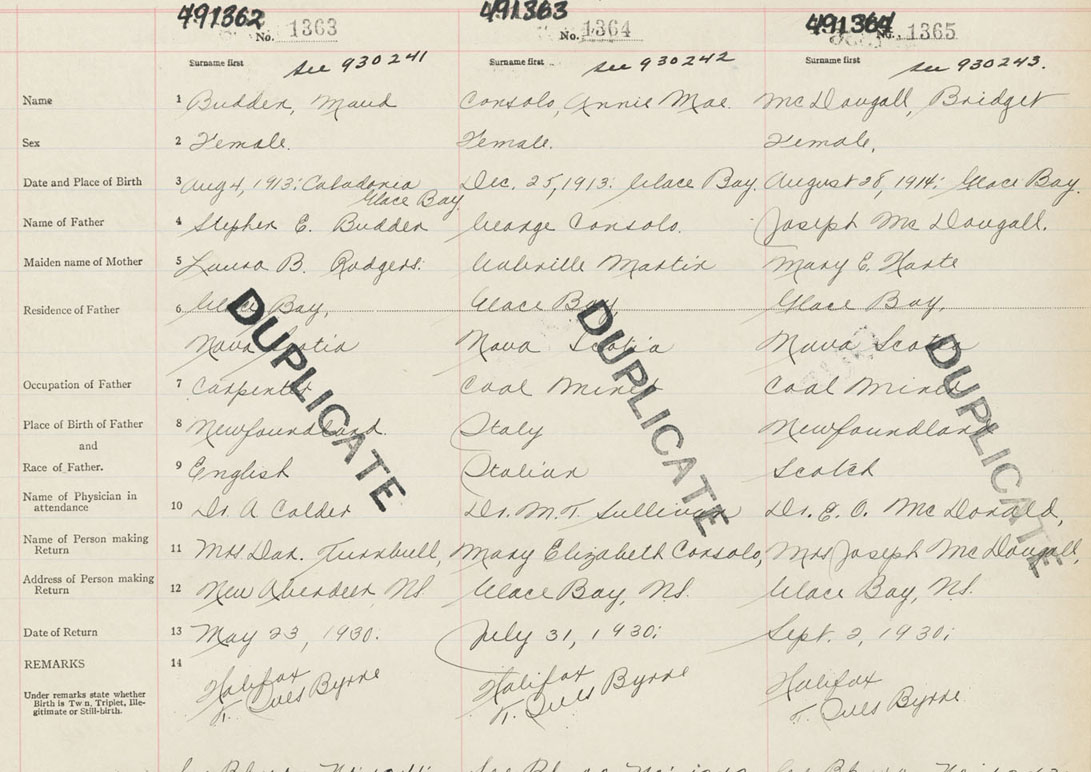 491362 491363 491364
No. 1363 No. 1364 No. 1365
Surname first Surname first Surname first
see 930241 see 930242 see 930243.
Name 1 Budden, Maud Consolo, Annie Mae. McDougall, Bridget
Sex 2 Female. Female. Female,
Date and Place of Birth 3 Aug 4, 1913: Caledonia Dec. 25, 1913: Glace Bay. August 28, 1914: Glace Bay.
Glace Bay
Name of Father 4 Stephen E. Budden George Consolo. Joseph McDougall.
Maiden name of Mother 5 Laura B. Rodgers: Martin Mary E. Harte
Residence of Father 6 Glace Bay, Glace Bay Glace Bay,
Nova Scotia Nova Scotia Nova Scotia
Occupation of Father 7 Carpenter Coal Miner Coal Miner
Place of Birth of Father 8 Newfoundland. Italy Newfoundland
and
Race of Father. 9 English Italian Scotch
Name of Physician in
attendance 10 Dr. A Calder Dr. M.T. Sullivan Dr. E. O. McDonald,
Name of Person making
Return 11 Mrs Dan. Turnbull, Mary Elizabeth Consolo, Mrs Joseph McDougall,
Address of Person making
Return 12 New Aberdeen, NS. Glace Bay, NS. Glace Bay, NS.
Date of Return 13 May 23, 1930: July 31, 1930: Sept. 2, 1930:
REMARKS 14
Under remarks state whether
Birth is Twin, Triplet, Ille-
gitimate or Still-birth.
Halifax Halifax Halifax
T. Ives Byrne T. Ives Byrne T. Ives Byrne.
DUPLICATE DUPLICATE DUPLICATE